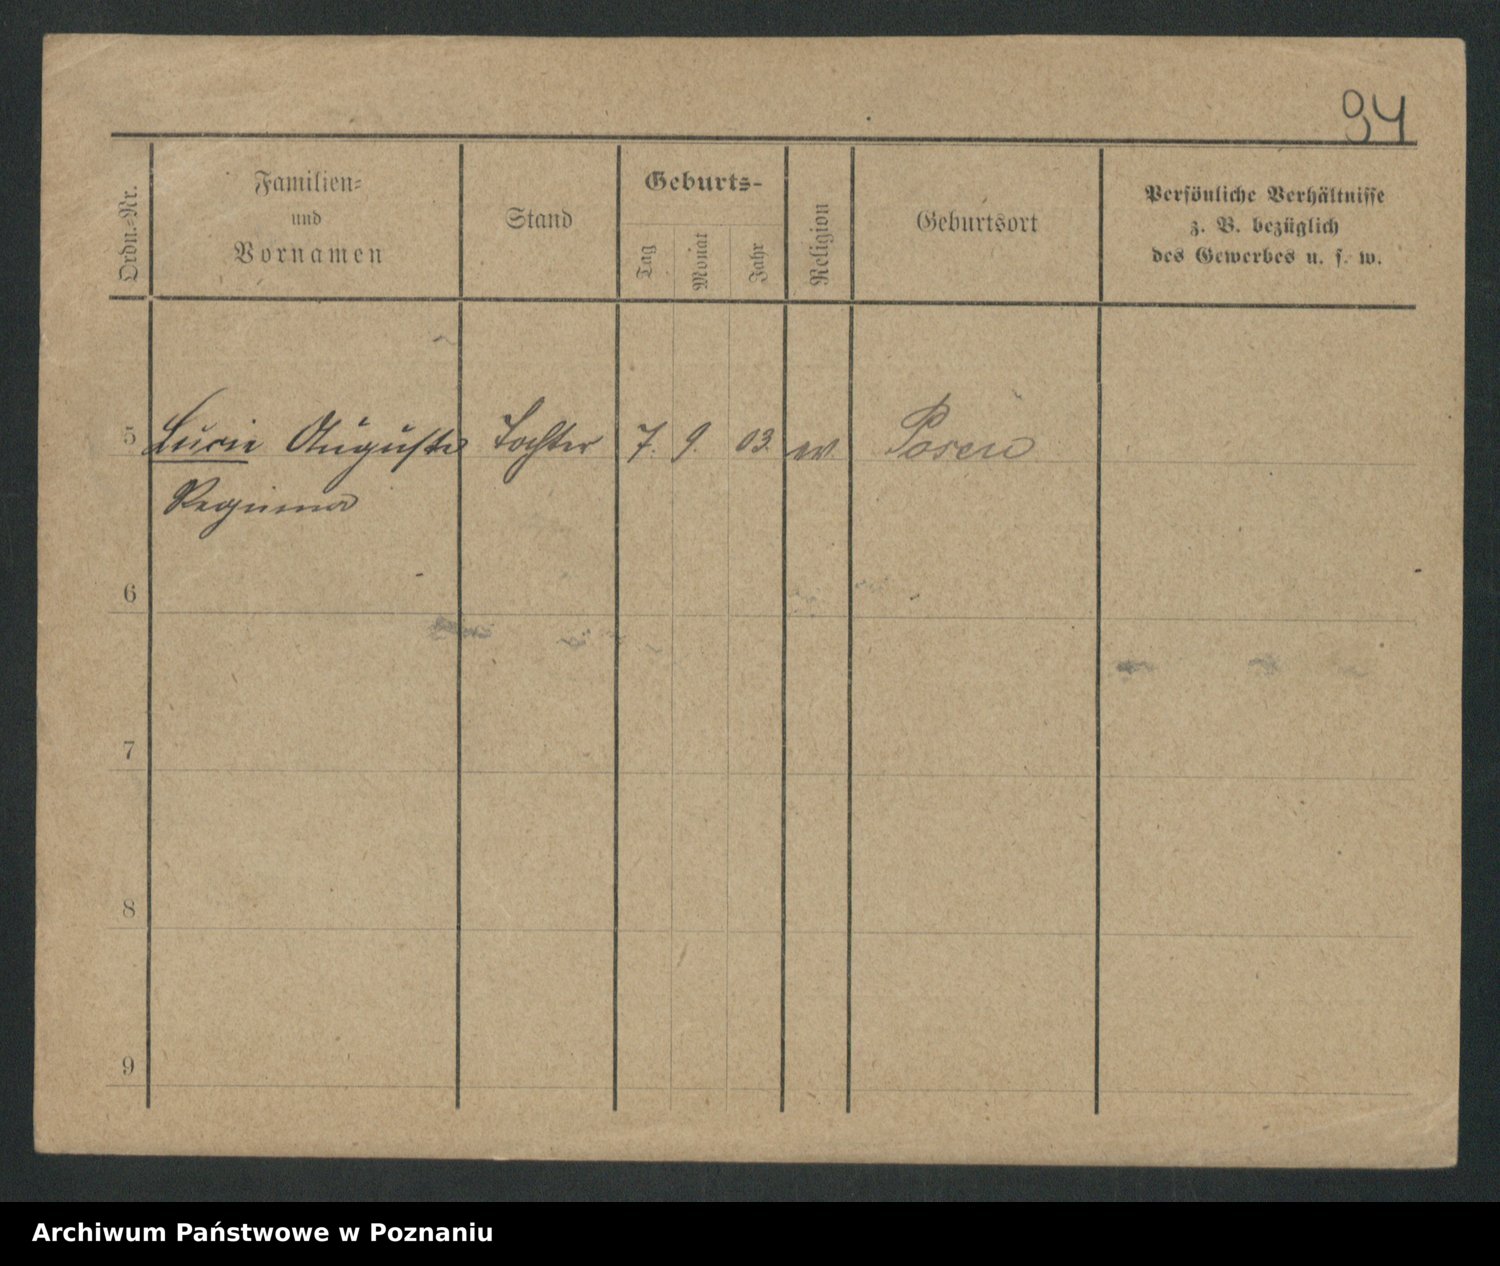 94
Ordn.-Nr.
Familien-
und
Vornamen
Stand
Geburts-
Tag
Monat
Jahr
Religion
Geburtsort
Persönliche Verhältnisse
z. B. bezüglich
des Gewerbes u. s. w.
5 Lucie Auguste Tochter 7. 9. 03. ev. Posen
Regina
6
7
8
9
Archiwum Państwowe w Poznaniu